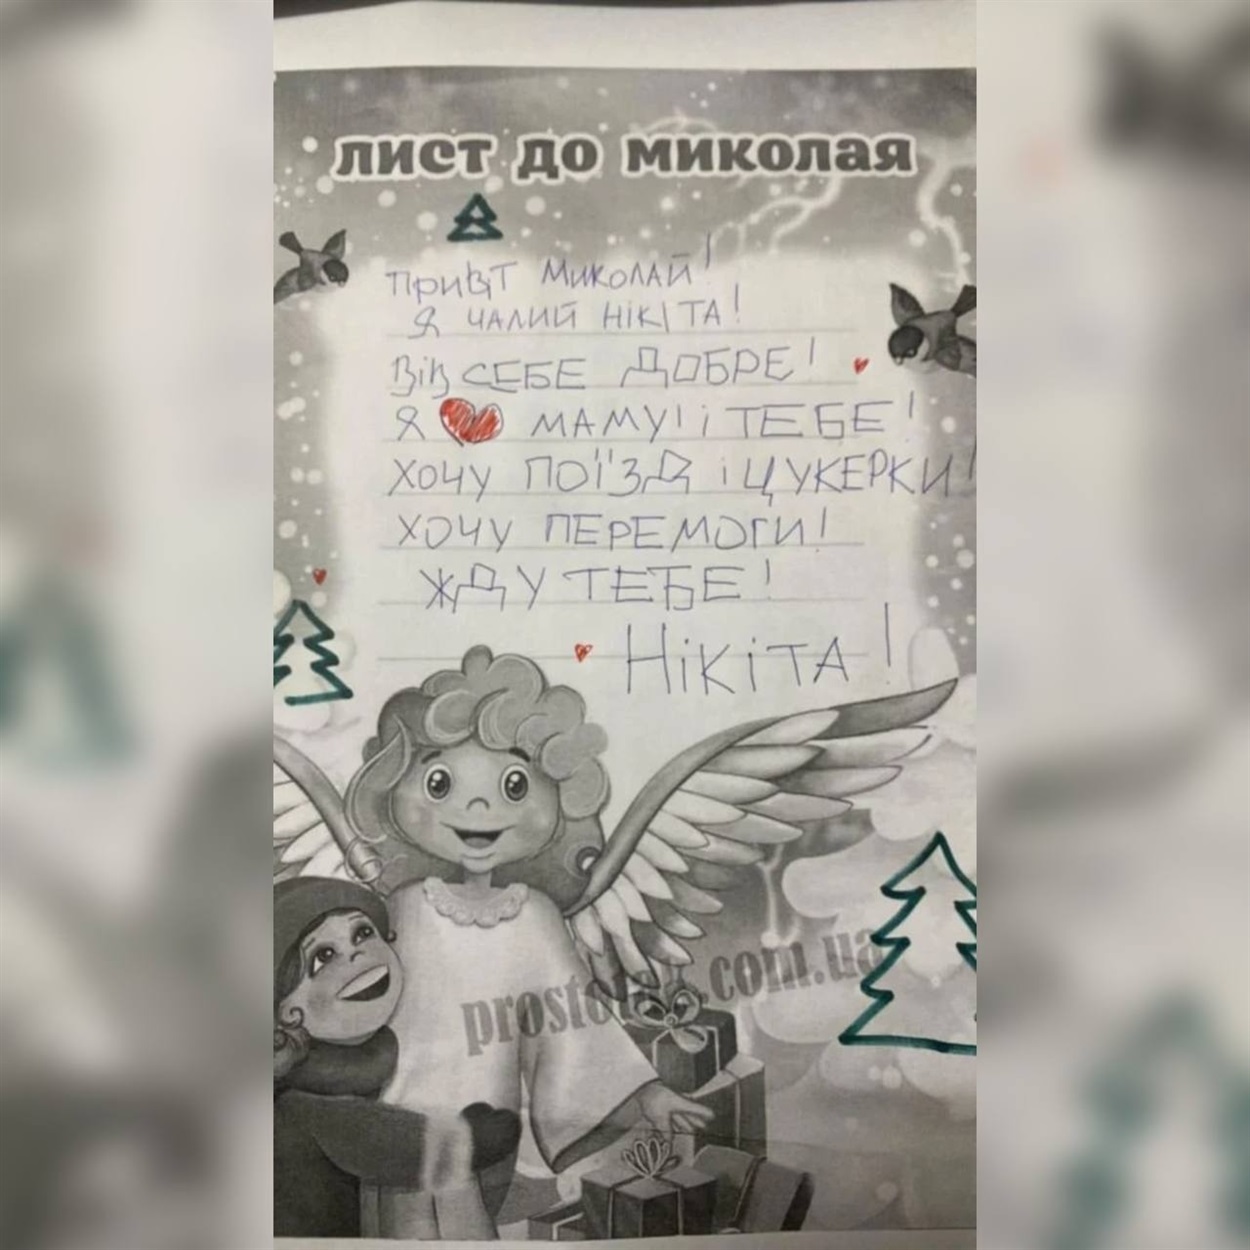 лист до миколая
ПРИВІТ МИКОЛАЙ!
Я ЧАЛИЙ НІКІТА!
ВІВ СЕБЕ ДОБРЕ!
Я ❤ МАМУ! і ТЕБЕ!
ХОЧУ ПОЇЗД І ЦУКЕРКИ!
ХОЧУ ПЕРЕМОГИ!
ЖДУ ТЕБЕ!
НІКІТА!
.com.ua